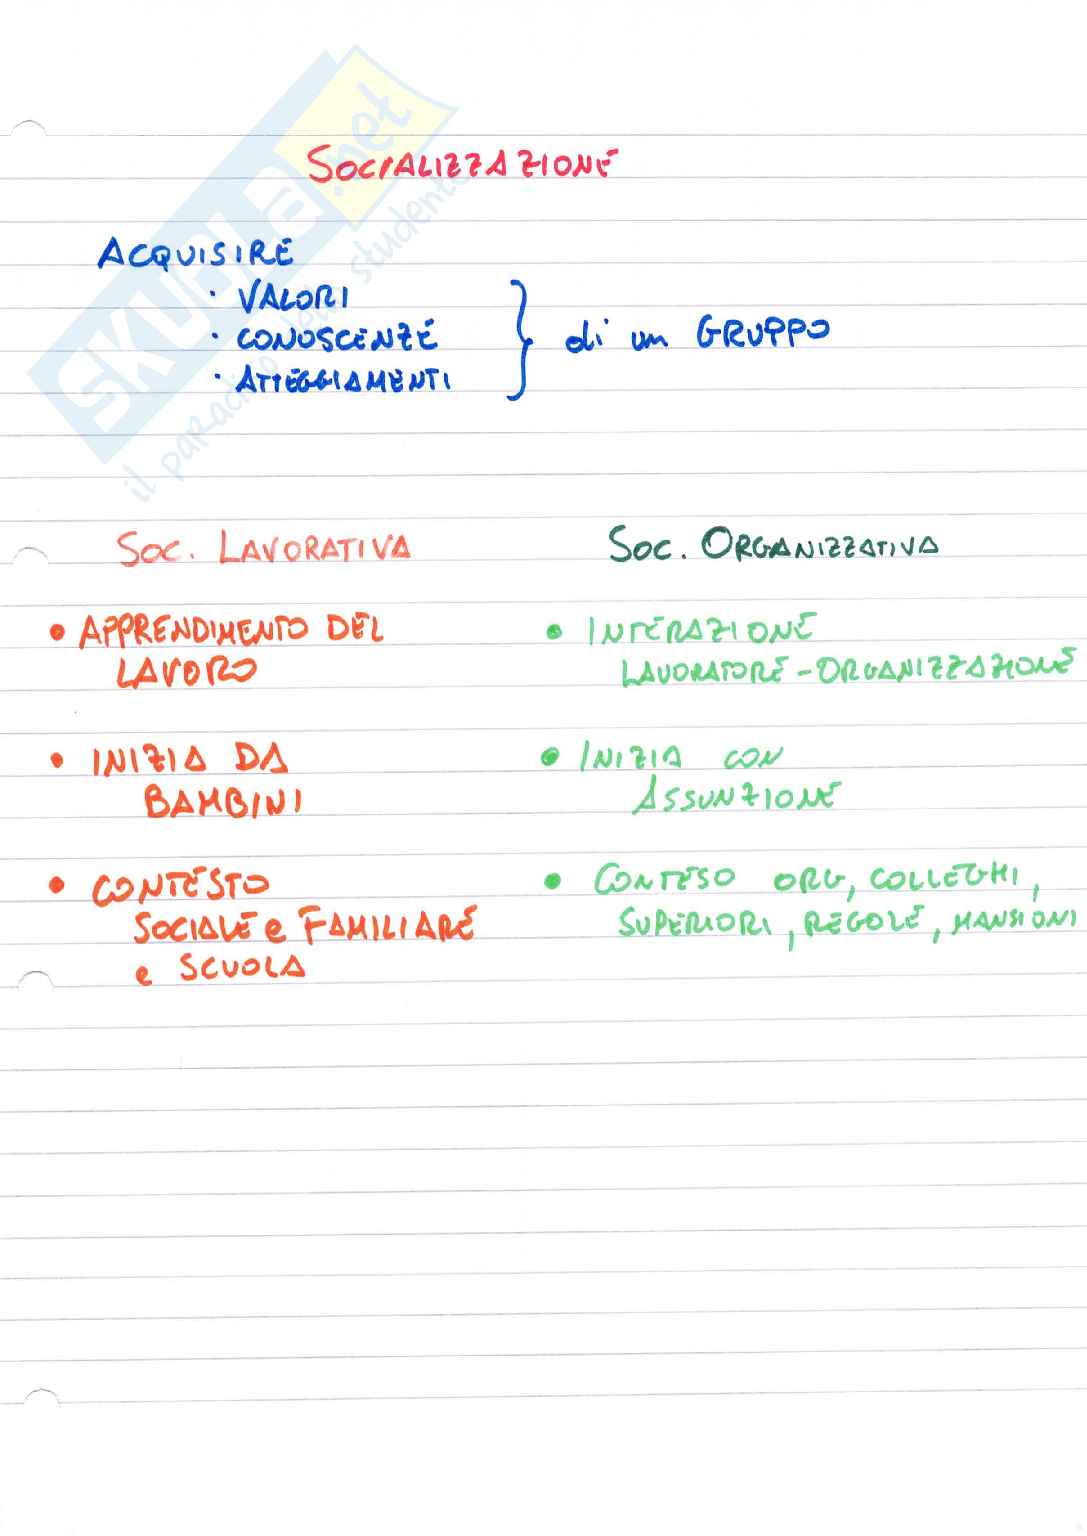 SOCIALIZZAZIONE
ACQUISIRE
· VALORI
· CONOSCENZE
· ATTEGGIAMENTI
di un GRUPPO
SOC. LAVORATIVA
• APPRENDIMENTO DEL
LAVORO
• INIZIA DA
BAMBINI
• CONTESTO
SOCIALE e FAMILIARE
e SCUOLA
SOC. ORGANIZZATIVA
• INTERAZIONE
LAVORATORE-ORGANIZZAZIONE
• INIZIA CON
ASSUNZIONE
• CONTESO ORG, COLLEGHI,
SUPERIORI, REGOLE, MANSIONI
SKUOLA.net
il paradiso dello studente